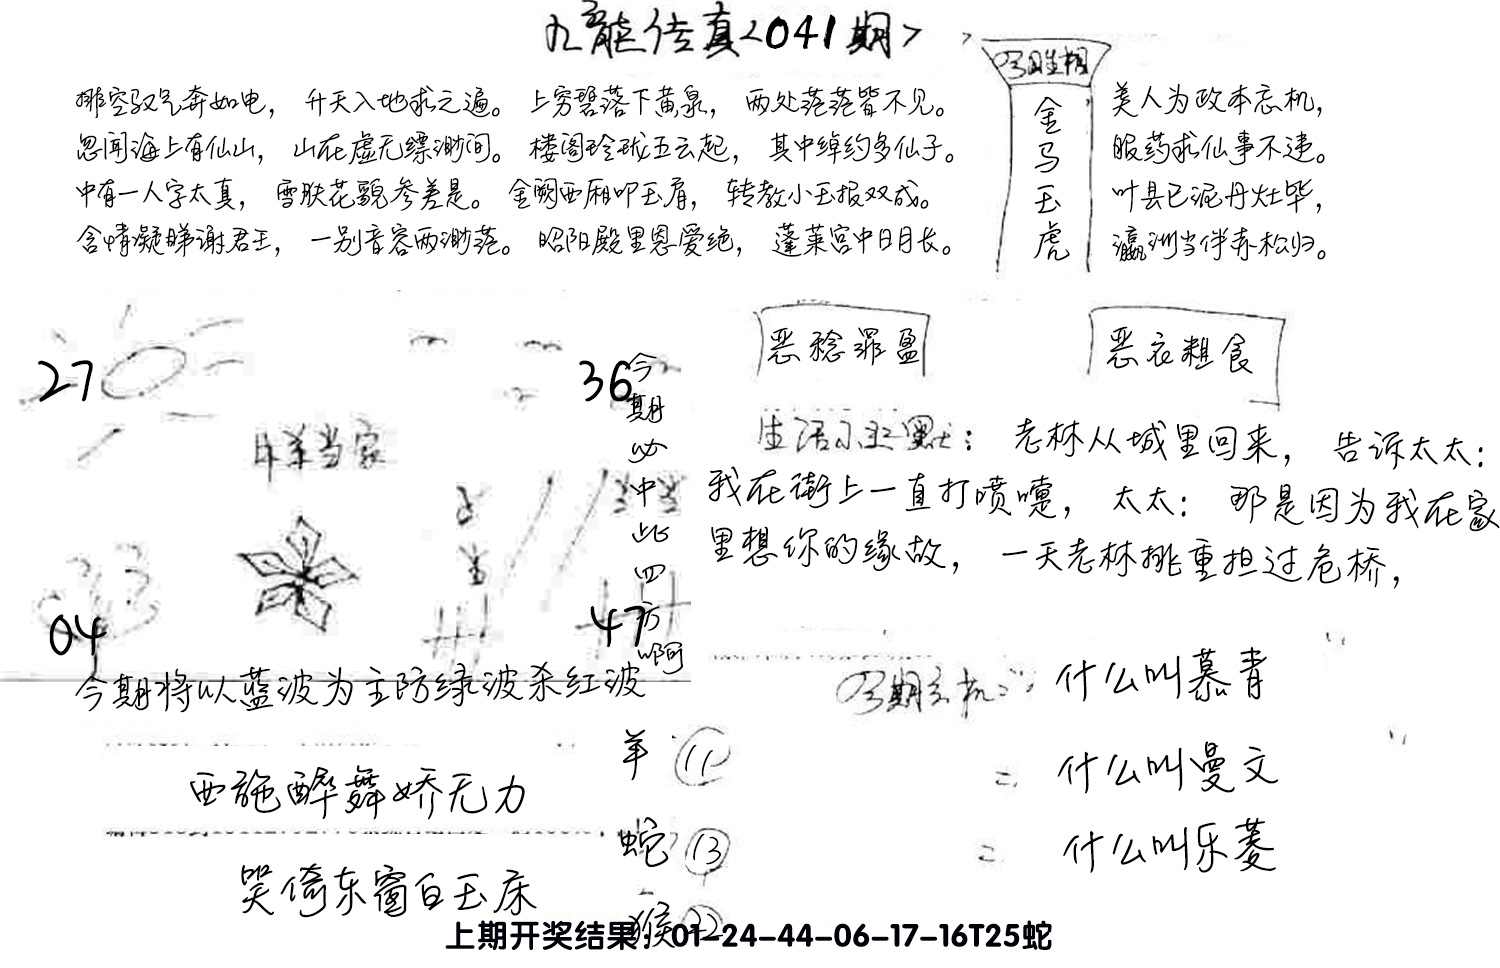 九龙传真<041期>
排空驭气奔如电，升天入地求之遍。上穷碧落下黄泉，两处茫茫皆不见。
忽闻海上有仙山，山在虚无缥渺间。楼阁玲珑五云起，其中绰约多仙子。
中有一人字太真，雪肤花貌参差是。金阙西厢叩玉扃，转教小玉报双成。
含情凝睇谢君王，一别音容两渺茫。昭阳殿里恩爱绝，蓬莱宫中日月长。
金马玉虎
美人为政本忘机，
服药求仙事不违。
叶县已泥丹灶毕，
瀛洲当伴赤松归。
27
36
04
47
今期必中此四方啊
今期将以蓝波为主防绿波杀红波
恶稔罪盈
恶衣粗食
生活小幽默：老林从城里回来，告诉太太：
我在街上一直打喷嚏，太太：那是因为我在家
里想你的缘故，一天老林挑重担过危桥，
什么叫慕青
=什么叫曼文
=什么叫乐菱
西施醉舞娇无力
笑倚东窗白玉床
羊 11
蛇 13
猴 22
上期开奖结果：01-24-44-06-17-16T25蛇